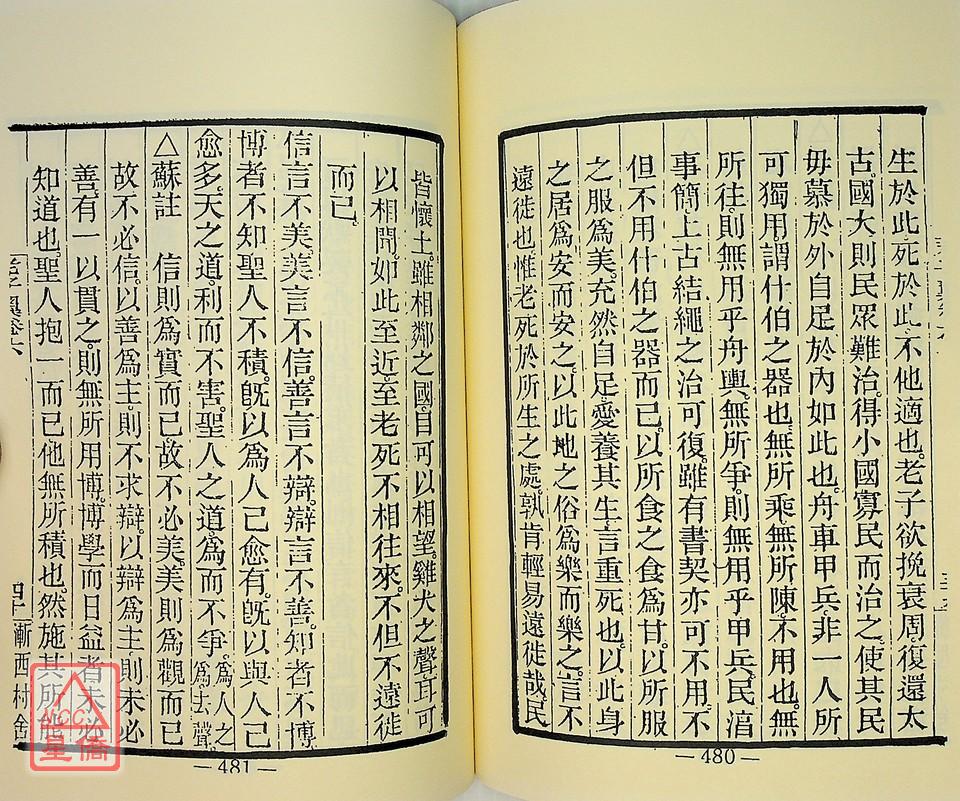 生於此死於此不他適也。老子欲挽衰周。復還太
古。國大則民眾難治。得小國寡民而治之。使其民
毋慕於外自足於內如此也。舟車甲兵。非一人所
可獨用。謂什伯之器也。無所乘。無所陳。不用也。無
所往。則無用乎舟輿。無所爭。則無用乎甲兵。民淳
事簡。上古結繩之治可復。雖有書契亦可不用。不
但不用什伯之器而已。以所食之食爲甘。以所服
之服爲美。充然自足。愛養其生。言重死也。以此身
之居爲安而安之。以此地之俗爲樂而樂之。言不
遠徙也。惟老死於所生之處。孰肯輕易遠徙哉。民
— 480 —
皆懷土。雖相鄰之國。目可以相望。雞犬之聲。耳可
以相聞。如此至近。至老死不相往來。不但不遠徙
而已。
信言不美。美言不信。善言不辯。辯言不善。知者不博
博者不知。聖人不積。旣以爲人己愈有。旣以與人己
愈多。天之道。利而不害。聖人之道。爲而不爭。爲人之爲去聲
△蘇註 信則爲實而已。故不必美。美則爲觀而已
故不必信。以善爲主。則不求辯。以辯爲主。則未必
善。有一以貫之。則無所用博。博學而日益者。未必
知道也。聖人抱一而已。他無所積也。然施其所能
四十
漸西村舍
— 481 —
NCC
星僑